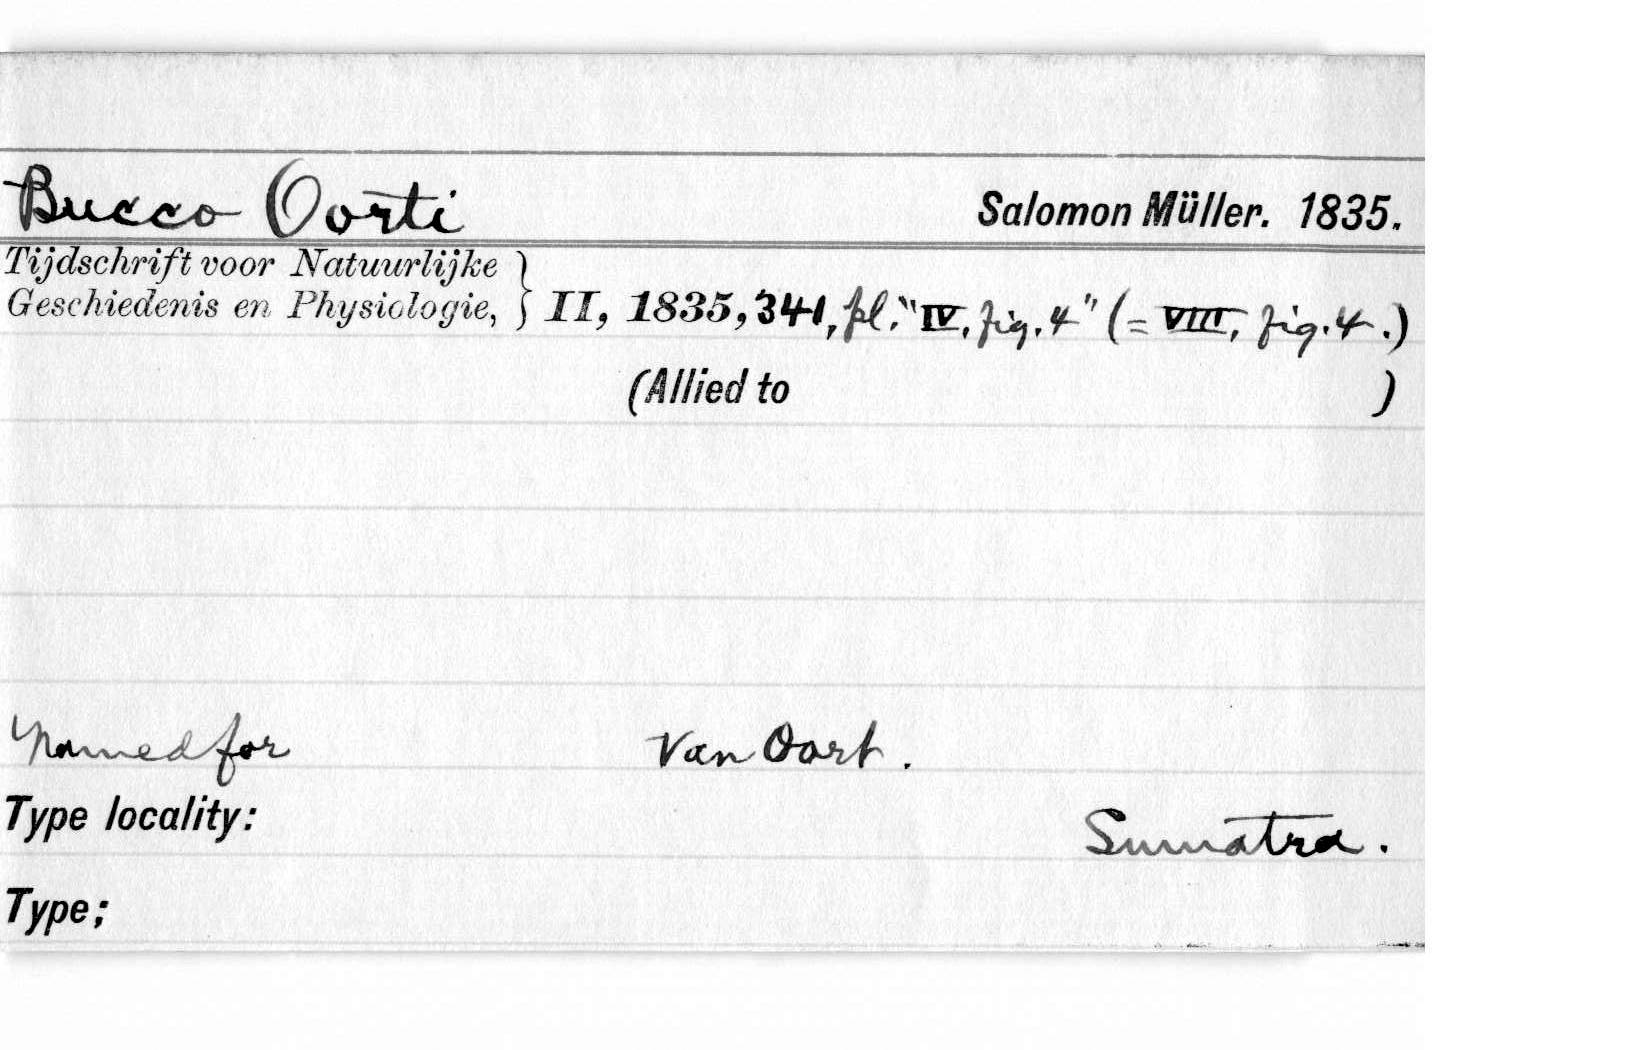 Bucco Oorti Salomon Müller. 1835.
Tijdschrift voor Natuurlijke
Geschiedenis en Physiologie, } II, 1835, 341, pl. "IV, fig. 4" (= VIII, fig. 4.)
(Allied to )
Named for Van Oort.
Type locality: Sumatra.
Type;